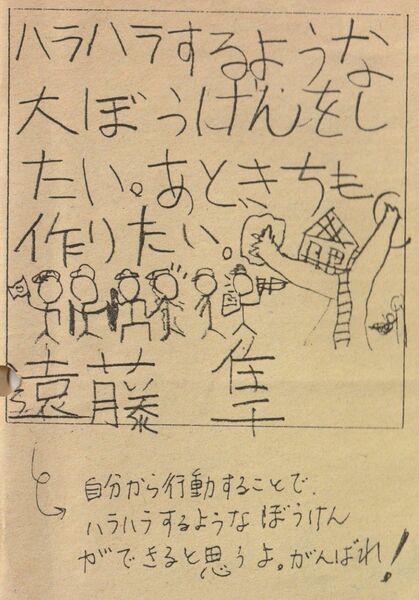 ハラハラするような
大ぼうけんをし
たい。あときちも
作りたい。
遠藤 隼
自分から行動することで、
ハラハラするようなぼうけん
ができると思うよ。がんばれ!